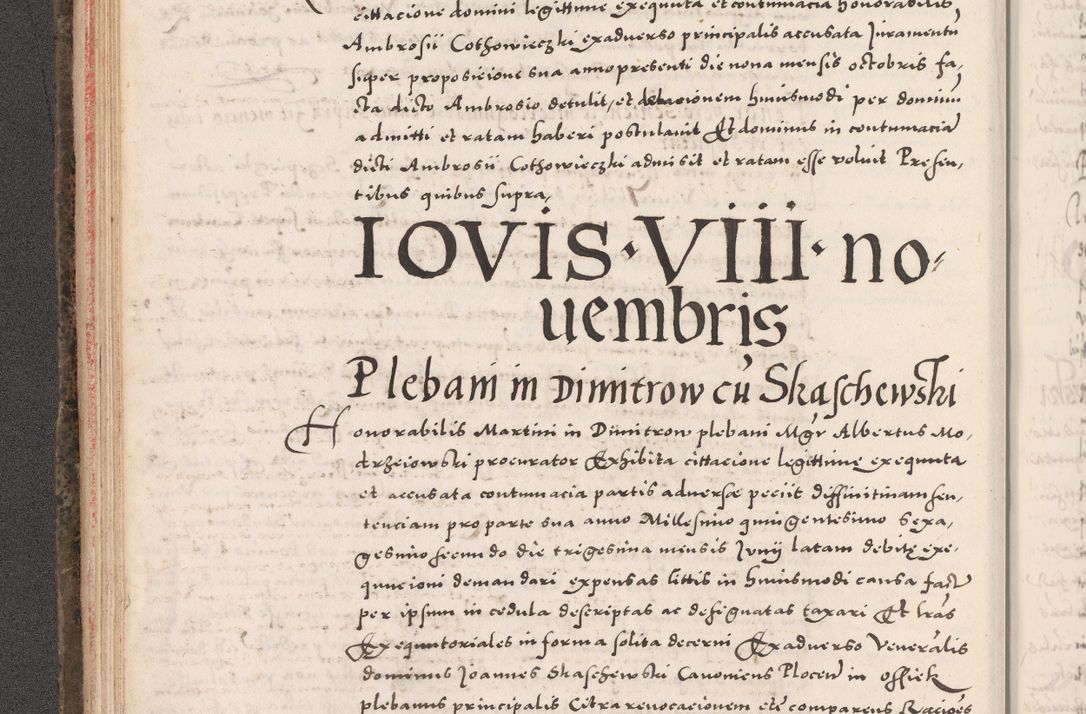 cittacione domini legittime exequuta et contumacia honorabilis
Ambrosii Cothowieczki exadverso principalis accusata Juramentū
super proposicione sua anno presenti die nona mensis octobris fa,
cta dicto Ambrosio detulit, et delacionem huiusmodi per dominū
admitti et ratam haberi postulavit Et dominus in contumaciā
dicti Ambrosii Cothowieczki admisit et ratam esse voluit Presen,
tibus quibus supra,
IOVIS · VIII · no=
uembris
Plebani in Dimitrow cū Skaschewski
Honorabilis Martini in Dimitrow plebani Mgr Albertus Mo,
drzeiowski procurator Exhibita cittacione legittime exequuta
et accusata contumacia partis adversæ peciit diffinitinam sen,
tenciam pro parte sua anno Millesimo quingentesimo Sexa,
gesimo secundo die trigesima mensis Junij latam debitę exe,
qunicioni demandari expensas littis in huiusmodi causa fact
per ipsum in cedula descriptas ac designatas taxari Et lras
Exequutoriales in forma solita decerni Exadverso Veneralis
dominus Joannes Skaschewski Canonicus Plocen in offiek
plebanus principalis Citra revocacionem etc comparens Racioēs